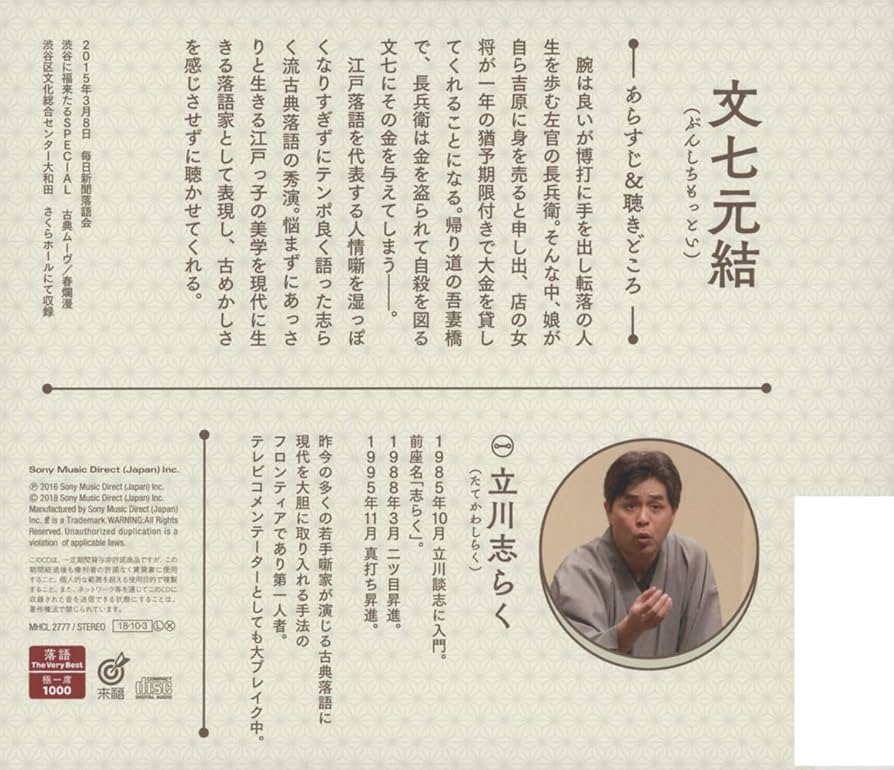 文七元結
(ぶんしちもっとい)
あらすじ&聴きどころ
腕は良いが博打に手を出し転落の人
生を歩む左官の長兵衛。そんな中、娘が
自ら吉原に身を売ると申し出、店の女
将が一年の猶予期限付きで大金を貸し
てくれることになる。帰り道の吾妻橋
で、長兵衛は金を盗られて自殺を図る
文七にその金を与えてしまう――。
江戸落語を代表する人情噺を湿っぽ
くなりすぎずにテンポ良く語った志ら
く流古典落語の秀演。悩まずにあっさ
りと生きる江戸っ子の美学を現代に生
きる落語家として表現し、古めかしさ
を感じさせずに聴かせてくれる。
2015年3月8日 毎日新聞落語会
渋谷に福来たるSPECIAL 古典ムーヴ/春爛漫
渋谷区文化総合センター大和田 さくらホールにて収録
立川志らく
(たてかわしらく)
1985年10月 立川談志に入門。
前座名「志らく」。
1988年3月 二ツ目昇進。
1995年11月 真打ち昇進。
昨今の多くの若手噺家が演じる古典落語に
現代を大胆に取り入れる手法の
フロンティアであり第一人者。
テレビコメンテーターとしても大ブレイク中。
Sony Music Direct (Japan) Inc.
Ⓟ 2016 Sony Music Direct (Japan) Inc.
© 2018 Sony Music Direct (Japan) Inc.
Manufactured by Sony Music Direct (Japan)
Inc. is a Trademark. WARNING:All Rights
Reserved. Unauthorized duplication is a
violation of applicable laws.
このCDは、一定期間貸与非許諾商品ですが、この
期間経過後も権利者の許諾なく賃貸業に使用
すること、個人的な範囲を超える使用目的で複製
すること、また、ネットワーク等を通じてこのCDに
収録された音を送信できる状態にすることは、
著作権法で禁じられています。
MHCL 2777 / STEREO 18・10・3 Ⓛ Ⓧ
落語
The Very Best
極一席
1000
来福
COMPACT
disc
DIGITAL AUDIO